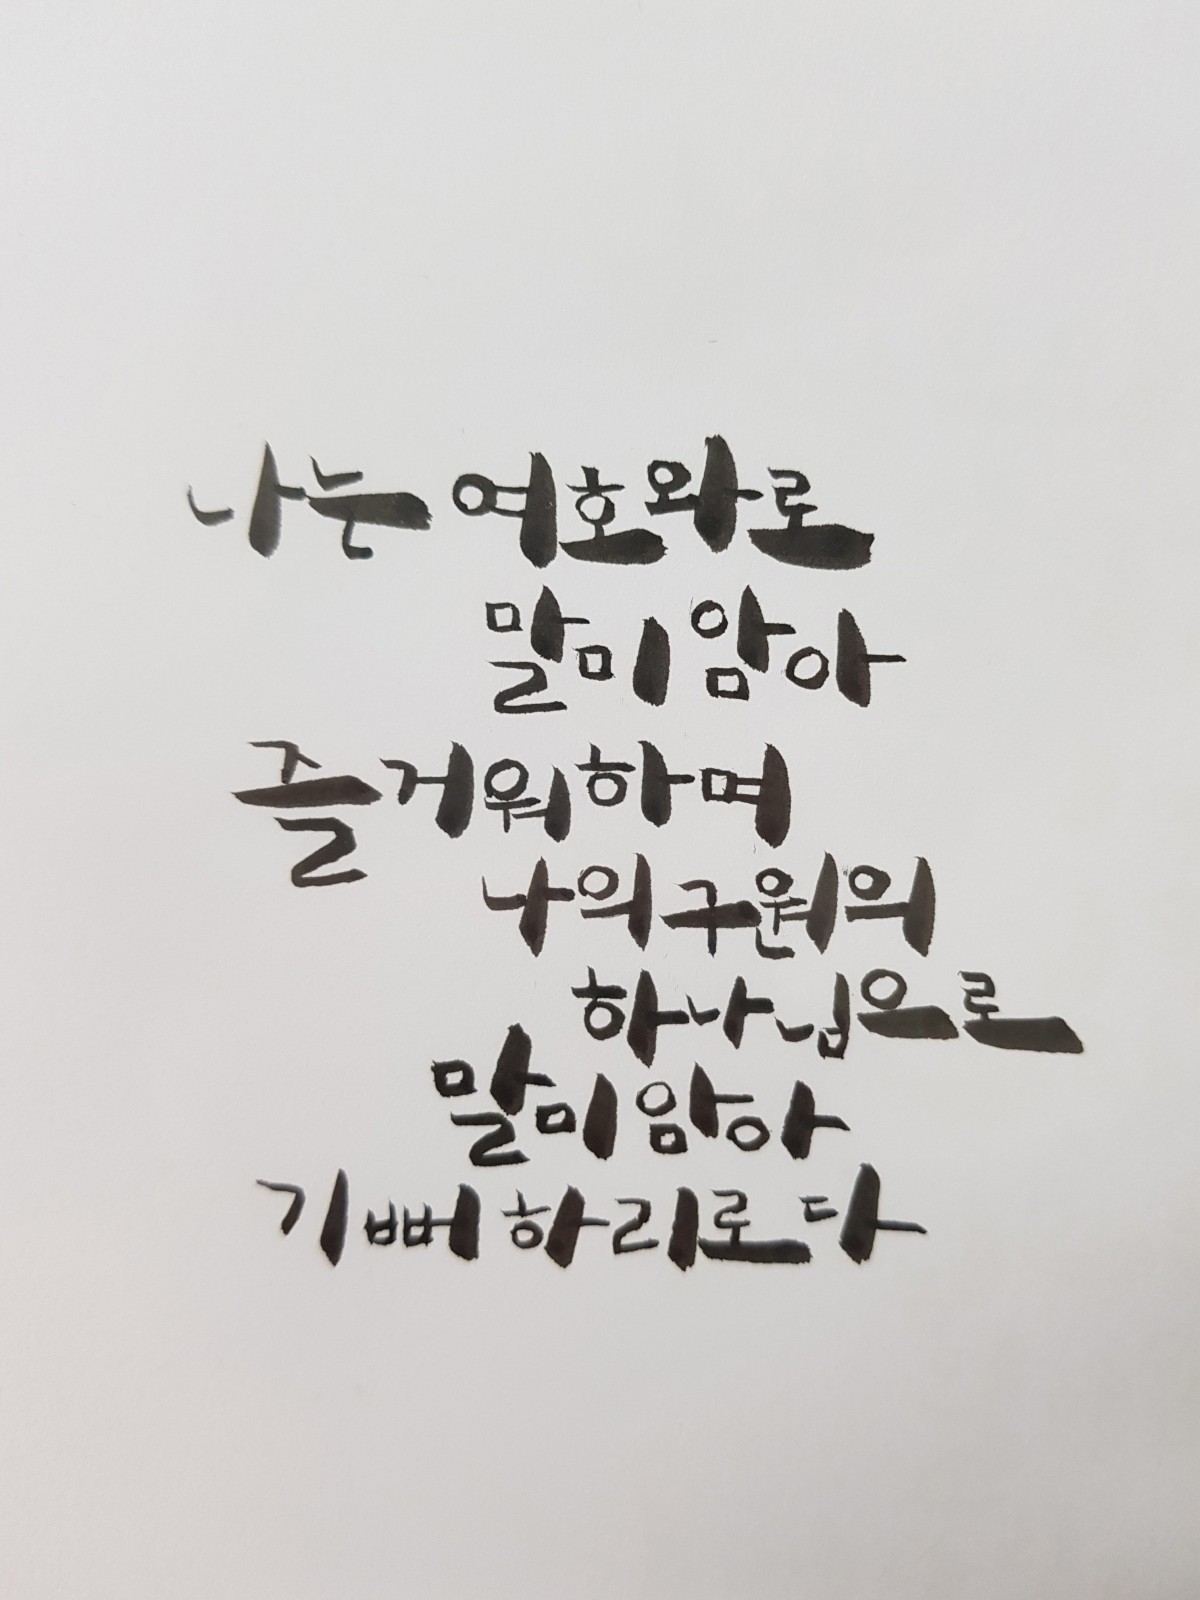 나는 여호와로
말미암아
즐거워하며
나의 구원의
하나님으로
말미암아
기뻐하리로다